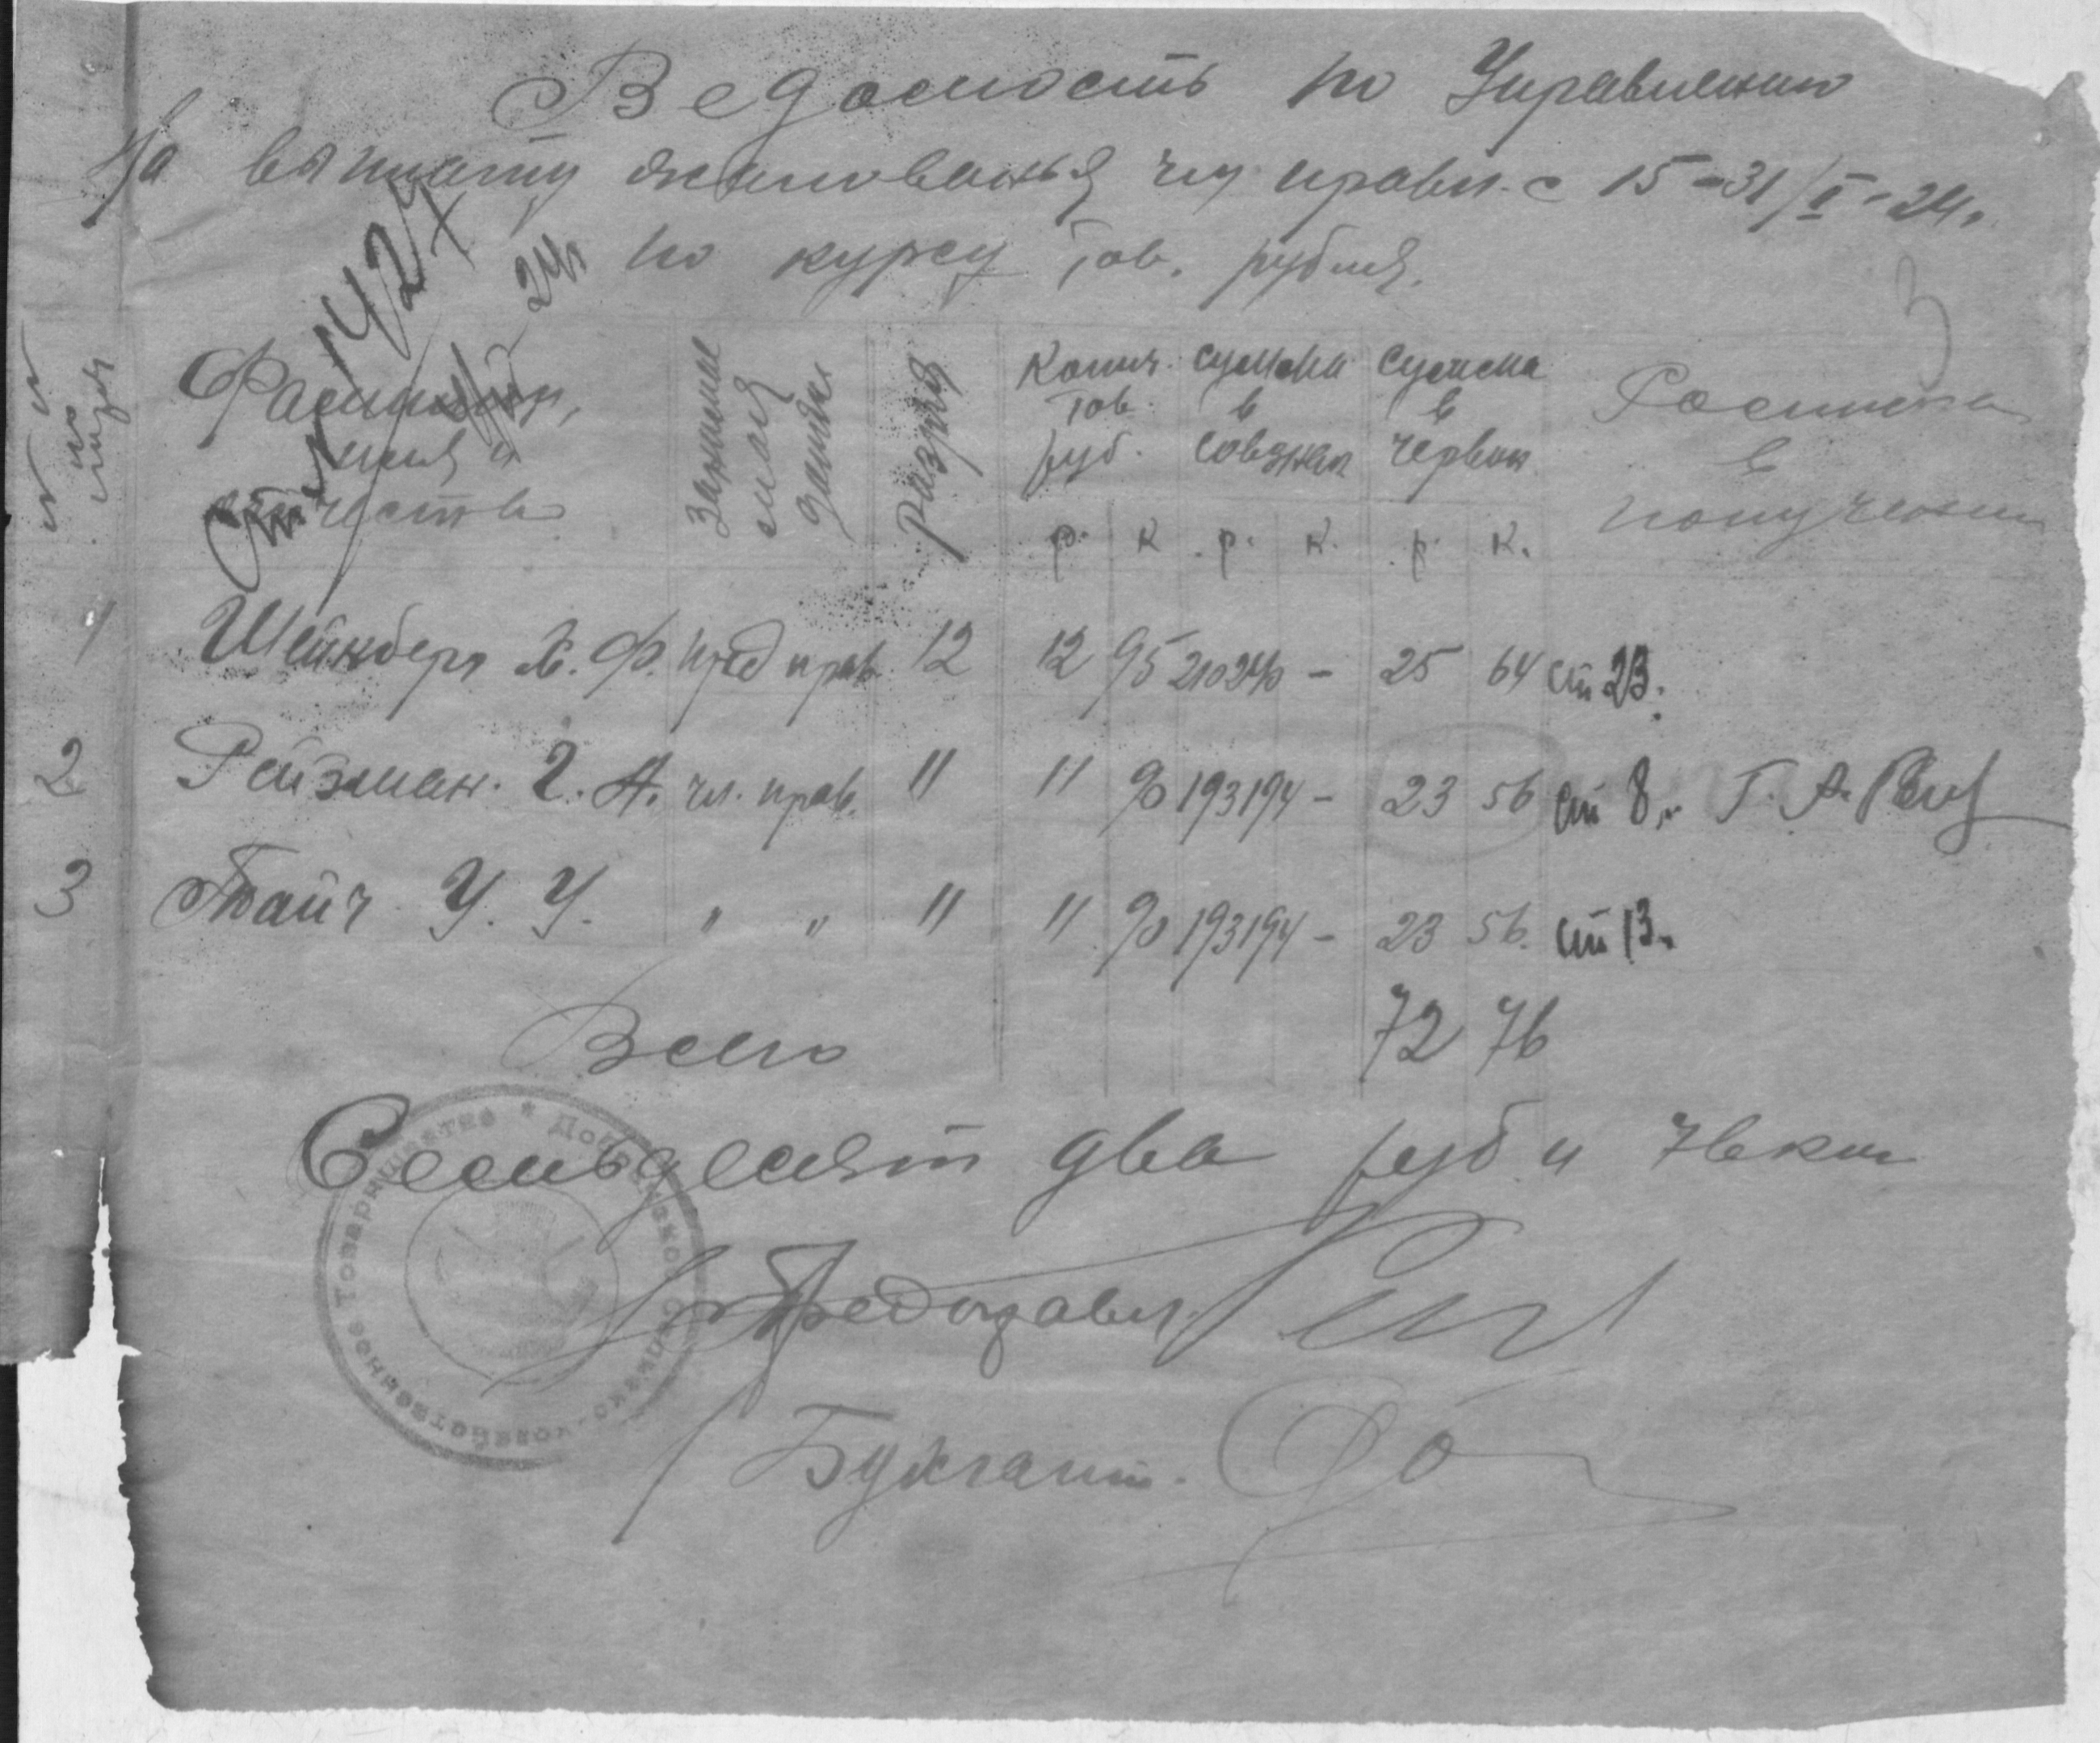 Ведомость по Управлению
На выплату жалованья чл. правл. с 15-31/I-24г.
по курсу тов. рубля.
Фамилия, имя и отчество
Занимаемая должн.
Разряд
Колич. тов. руб.
сумма в совзнак
Сумма в червон.
Росписка в получении
р. к р. к. р. к.
1 Шейнберг Х. Ф. пред прав. 12 12 95 210240 - 25 64 ст 23.
2 Рейзман. Г. А. чл. прав. 11 11 90 193194 - 23 56 ст 8. Г. А. Рейз
3 Тайч У. У. " " 11 11 90 193194 - 23 56. ст 13.
Всего 72 76
Семьдесят два руб и 76 коп
Предправл.
Бухгалт.